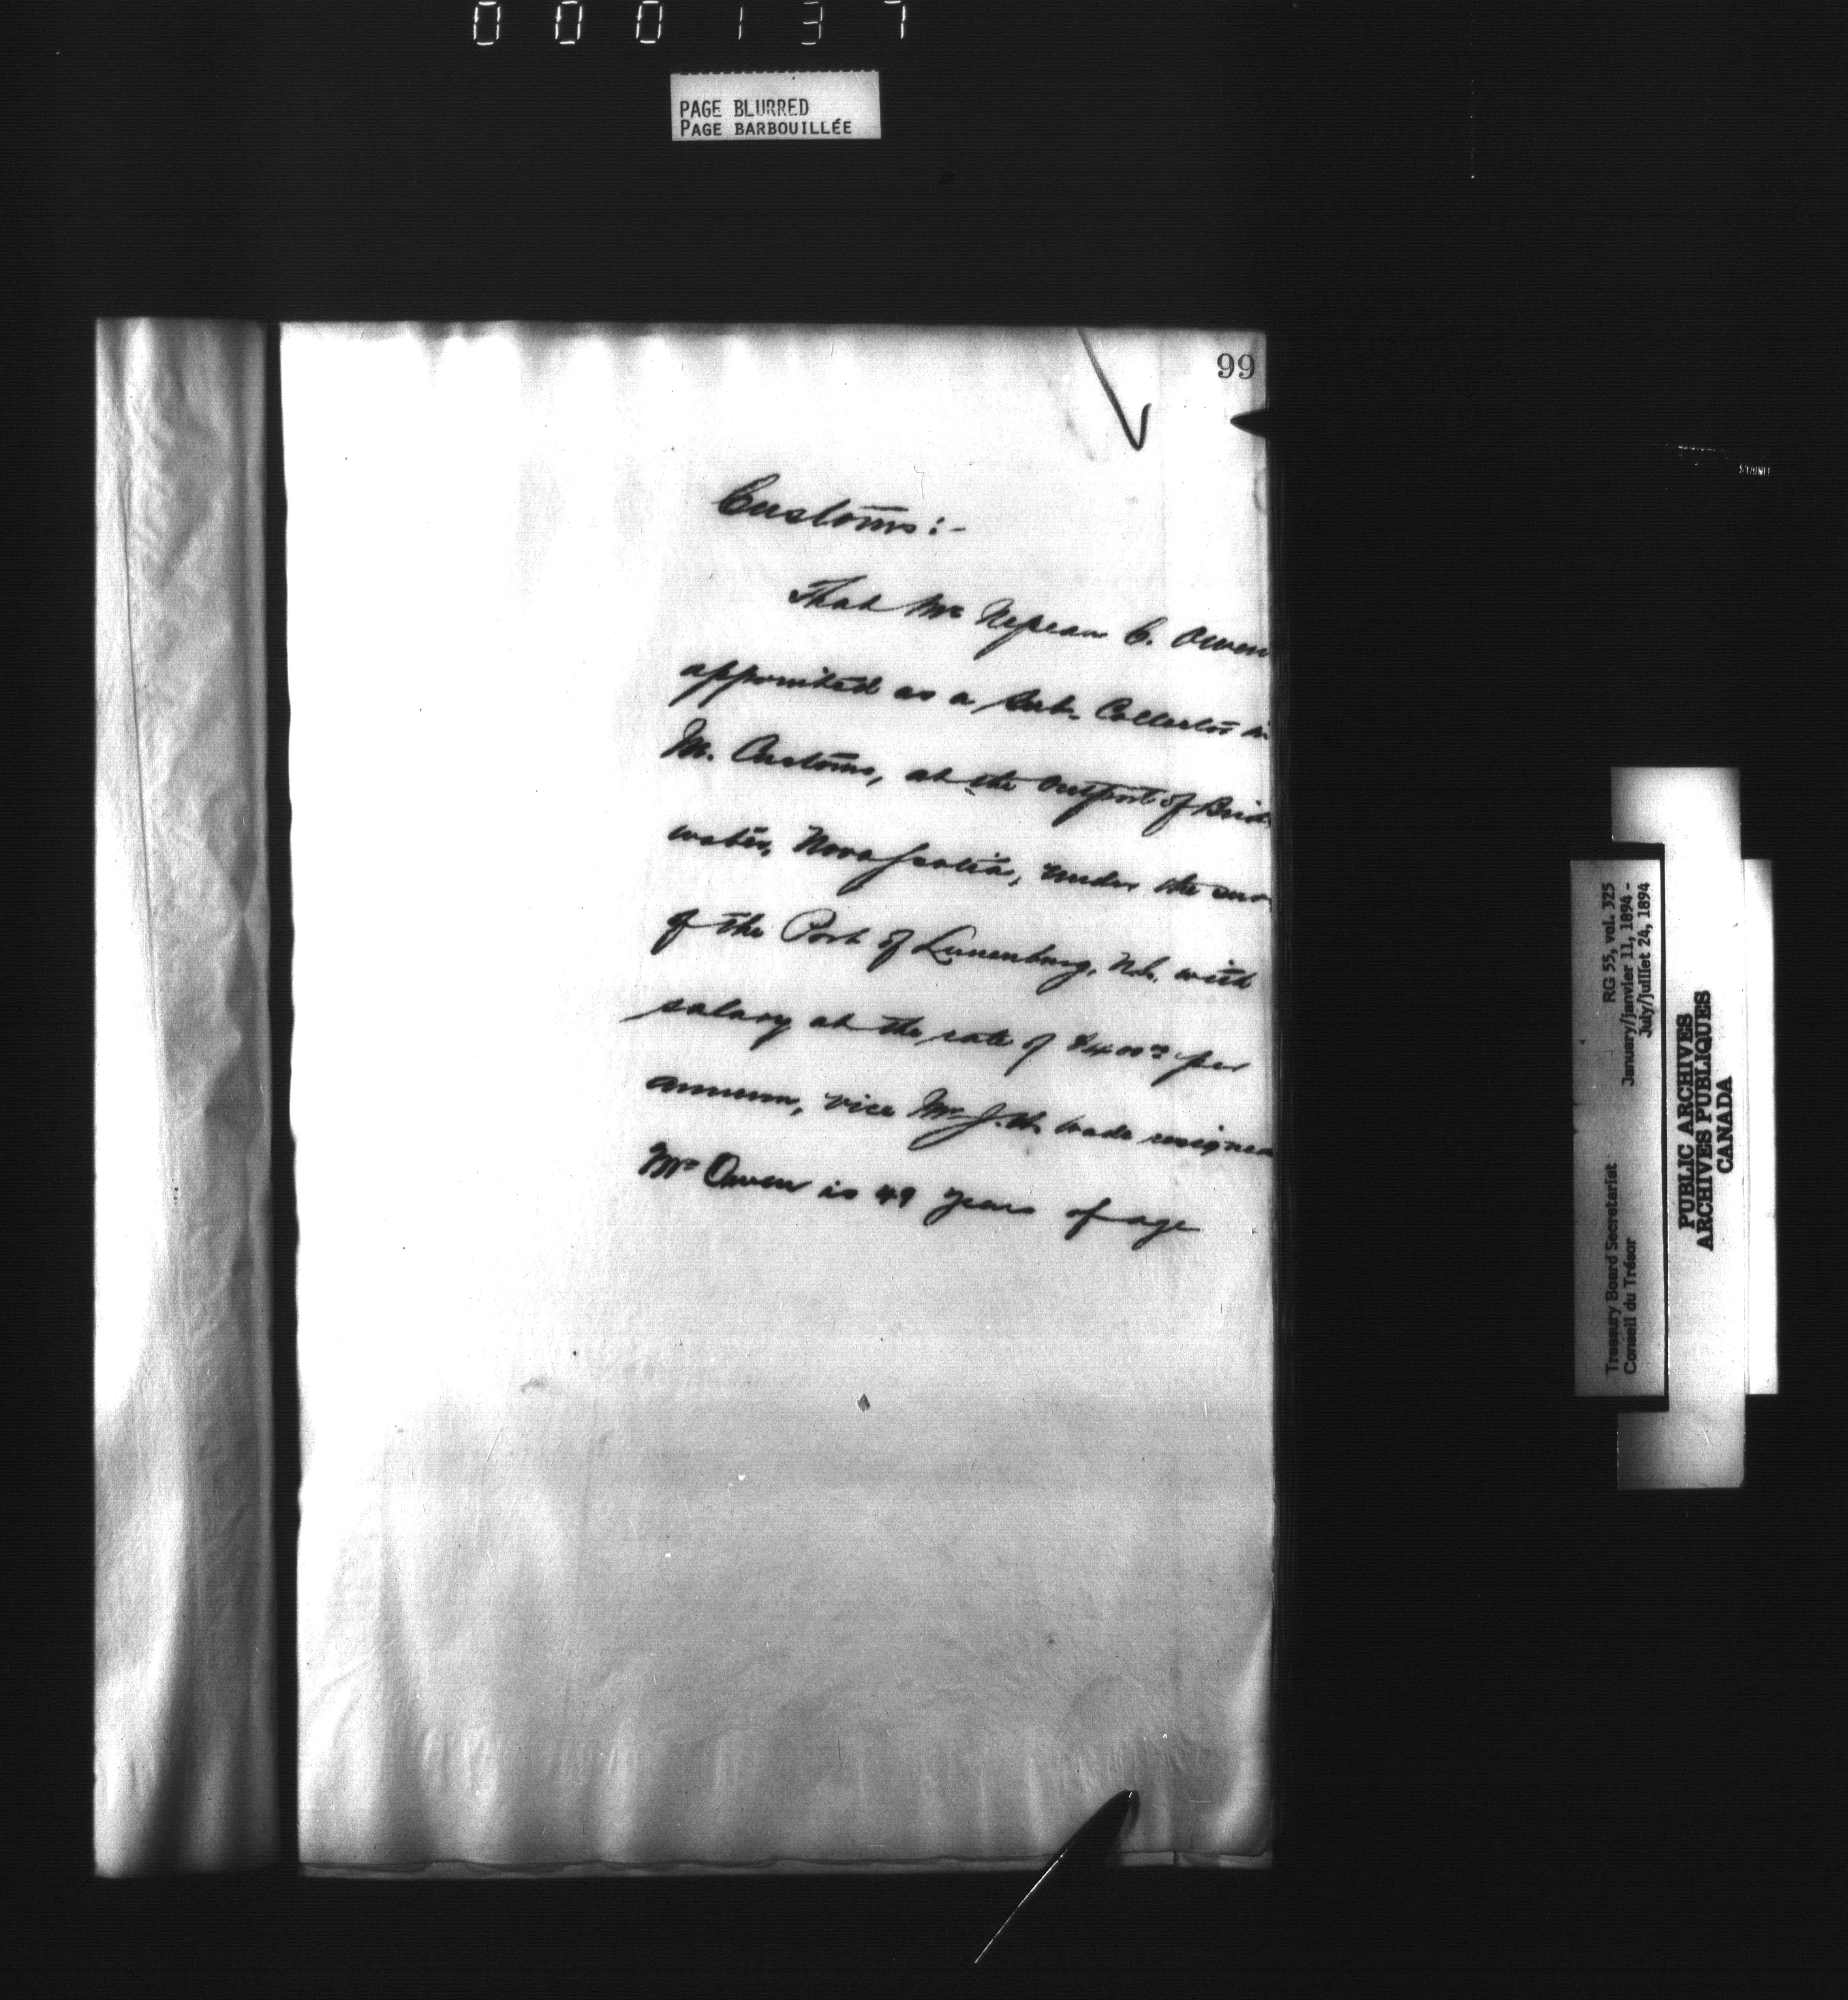 000137
PAGE BLURRED
PAGE BARBOUILLÉE
99
Customs:-
That Mr Nepean C. Owen
appointed as a Sub-Collector in
M. Customs, at the Outport of Brid
water, Nova Scotia, under the sur
of the Port of Lunenburg, N.S. with
salary at the rate of $400⁰⁰ per
annum, vice Mr J. H. Wade resigned
Mr Owen is 49 years of age
RG 55, vol. 325
January/janvier 11, 1894 -
July/juillet 24, 1894
Treasury Board Secretariat
Conseil du Trésor
PUBLIC ARCHIVES
ARCHIVES PUBLIQUES
CANADA